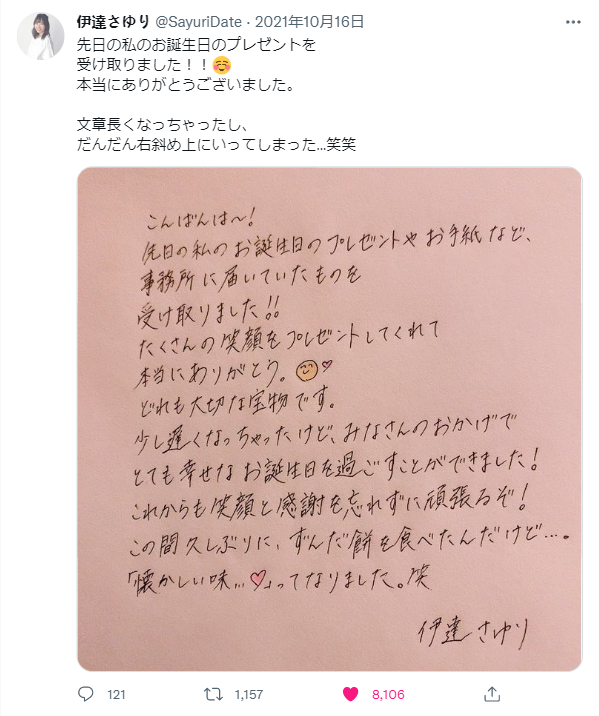 伊達さゆり @SayuriDate · 2021年10月16日
先日の私のお誕生日のプレゼントを
受け取りました！！☺️
本当にありがとうございました。
文章長くなっちゃったし、
だんだん右斜め上にいってしまった...笑笑
こんばんは〜！
先日の私のお誕生日のプレゼントやお手紙など、
事務所に届いていたものを
受け取りました!!
たくさんの笑顔をプレゼントしてくれて
本当にありがとう。😊♡
どれも大切な宝物です。
少し遅くなっちゃったけど、みなさんのおかげで
とても幸せなお誕生日を過ごすことができました！
これからも笑顔と感謝を忘れずに頑張るぞ！
この間久しぶりに、ずんだ餅を食べたんだけど…。
「懐かしい味…♡」ってなりました。笑
伊達さゆり
121 1,157 8,106